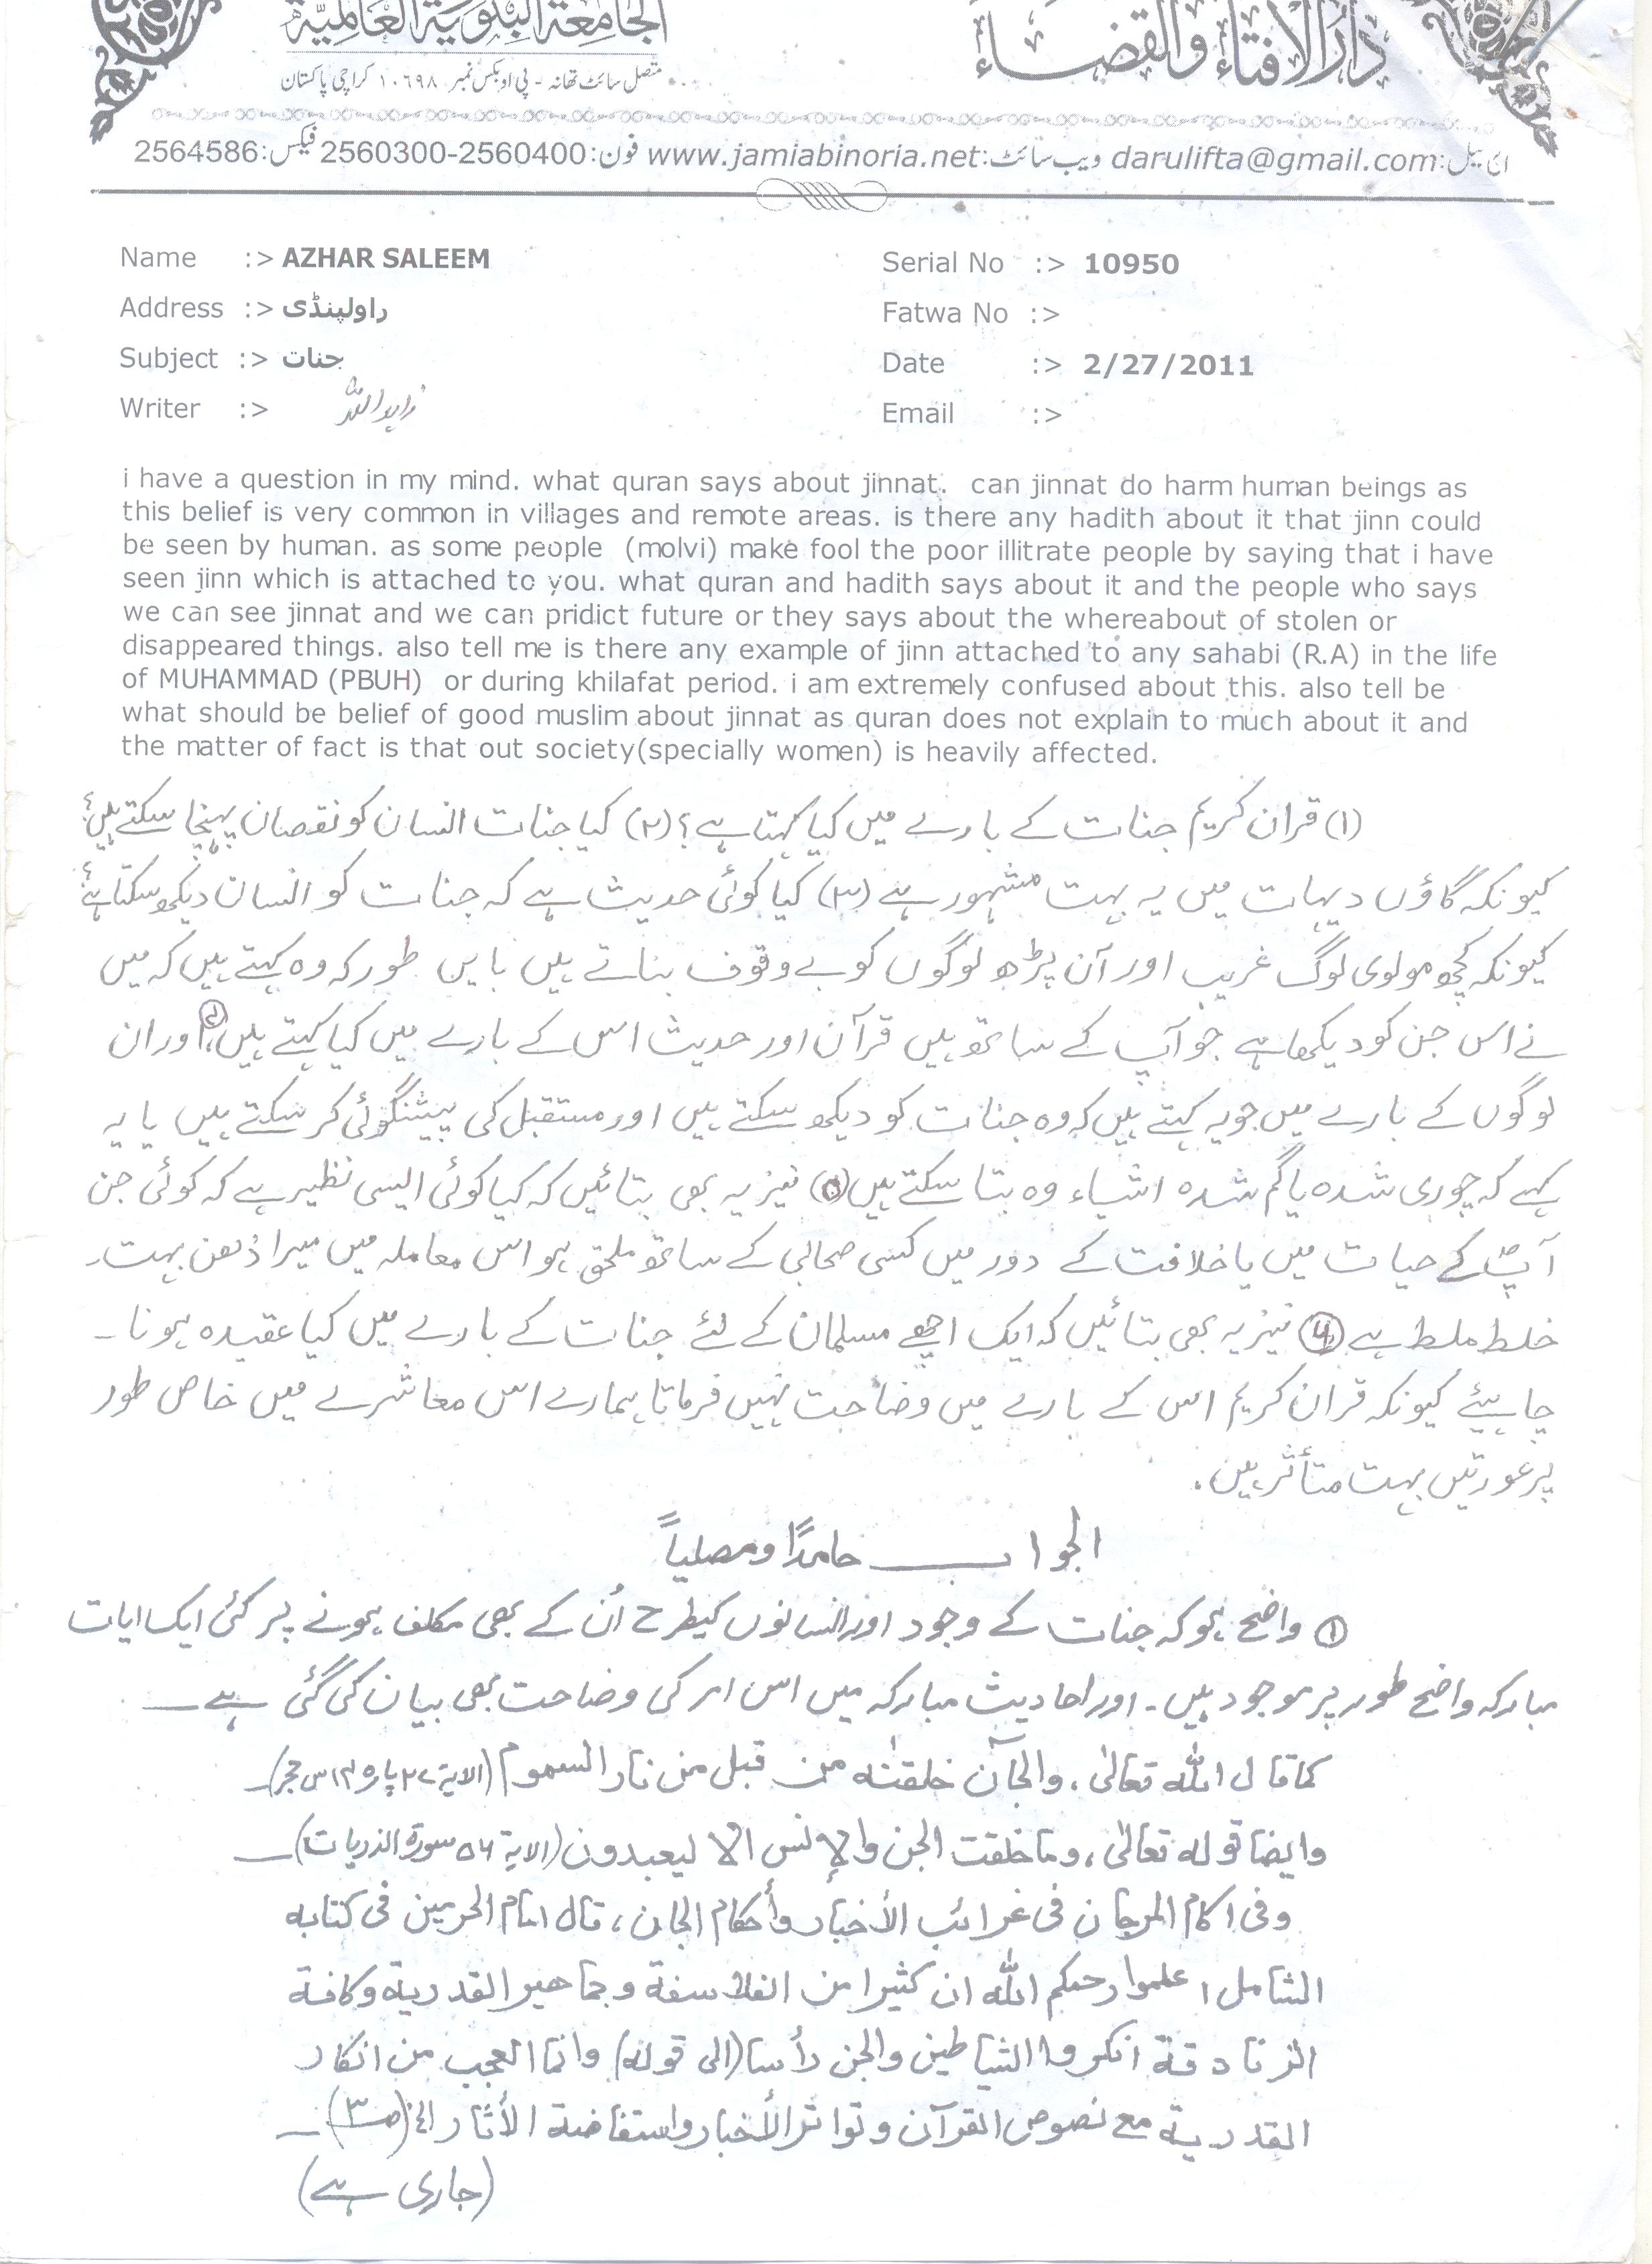 دَارُالافتَاء وَالقضَاء
الجَامِعَة البِنُّورِيَّة العَالمِيَّة
متصل سائٹ تھانہ - پی او بکس نمبر ۱۰۶۹۸ کراچی پاکستان
ای میل:darulifta@gmail.com ویب سائٹ:www.jamiabinoria.net فون:2560300-2560400 فیکس:2564586
Name :> AZHAR SALEEM
Serial No :> 10950
Address :> راولپنڈی
Fatwa No :>
Subject :> جنات
Date :> 2/27/2011
Writer :>
Email :>
i have a question in my mind. what quran says about jinnat. can jinnat do harm human beings as
this belief is very common in villages and remote areas. is there any hadith about it that jinn could
be seen by human. as some people (molvi) make fool the poor illitrate people by saying that i have
seen jinn which is attached to you. what quran and hadith says about it and the people who says
we can see jinnat and we can pridict future or they says about the whereabout of stolen or
disappeared things. also tell me is there any example of jinn attached to any sahabi (R.A) in the life
of MUHAMMAD (PBUH) or during khilafat period. i am extremely confused about this. also tell be
what should be belief of good muslim about jinnat as quran does not explain to much about it and
the matter of fact is that out society(specially women) is heavily affected.
(۱) قران کریم جنات کے بارے میں کیا کہتا ہے؟ (۲) کیا جنات انسان کو نقصان پہنچا سکتے ہیں؟
کیونکہ گاؤں دیہات میں یہ بہت مشہور ہے (۳) کیا کوئی حدیث ہے کہ جنات کو انسان دیکھ سکتا ہے؟
کیونکہ کچھ مولوی لوگ غریب اور آن پڑھ لوگوں کو بے وقوف بناتے ہیں باین طور کہ وہ کہتے ہیں کہ میں
نے اس جن کو دیکھا ہے جو آپ کے ساتھ ہیں قرآن اور حدیث اس کے بارے میں کیا کہتے ہیں، ④ اور ان
لوگوں کے بارے میں جو یہ کہتے ہیں کہ وہ جنات کو دیکھ سکتے ہیں اور مستقبل کی پیشنگوئی کر سکتے ہیں یا یہ
کہے کہ چوری شدہ یا گم شدہ اشیاء وہ بتا سکتے ہیں (۵) نیز یہ بھی بتائیں کہ کیا کوئی ایسی نظیر ہے کہ کوئی جن
آپؐ کے حیات میں یا خلافت کے دور میں کسی صحابی کے ساتھ ملحق ہو اس معاملہ میں میرا ذھن بہت۔
خلط ملط ہے (۶) نیز یہ بھی بتائیں کہ ایک اچھے مسلمان کے لئے جنات کے بارے میں کیا عقیدہ ہونا۔
چاہیئے کیونکہ قران کریم اس کے بارے میں وضاحت نہیں فرماتا ہمارے اس معاشرے میں خاص طور
پر عورتیں بہت متأثر ہیں۔
الجواب حامدًا ومصلیاً
① واضح ہو کہ جنات کے وجود اور انسانوں کیطرح اُن کے بھی مکلف ہونے پر کئی ایک ایات
مبارکہ واضح طور پر موجود ہیں۔ اور احادیث مبارکہ میں اس امر کی وضاحت بھی بیان کی گئی ہے۔
کما قال اللہ تعالیٰ، والجآن خلقنٰه من قبل من نار السموم (الایة ۲۷ پارہ ۱۴ س حجر)۔
وایضا قوله تعالیٰ، وما خلقت الجن والإنس الا لیعبدون (الایة ۵۶ سورة الذریات)۔
وفی اکام المرجان فی غرائب الأخبار وأحکام الجان، قال امام الحرمین فی کتابه
الشامل اعلموا رحمکم اللہ ان کثیرا من الفلاسفة وجماهیر القدریة وکافة
الزنادقة انکروا الشیاطین والجن رأسا (الی قوله) وانما العجب من انکار
القدریة مع نصوص القرآن وتواتر الأخبار واستفاضة الأثار الخ (صـ۳)۔
(جاری ہے)